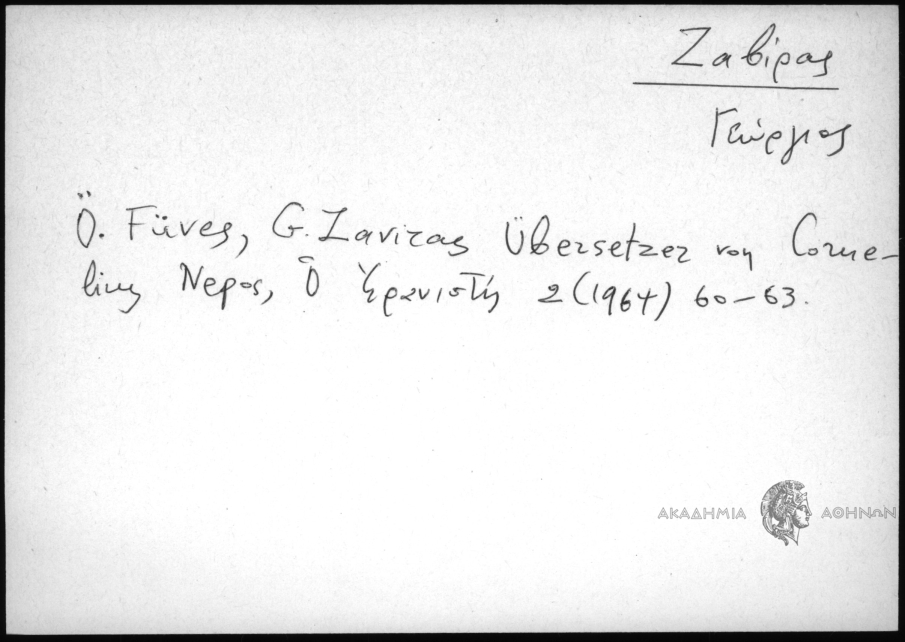 Ζαβίρας
Γεώργιος
Ö. Füves, G. Zaviras Übersetzer von Corne-
lius Nepos, Ὁ Ἐρανιστής 2 (1964) 60–63.
ΑΚΑΔΗΜΙΑ ΑΘΗΝΩΝ